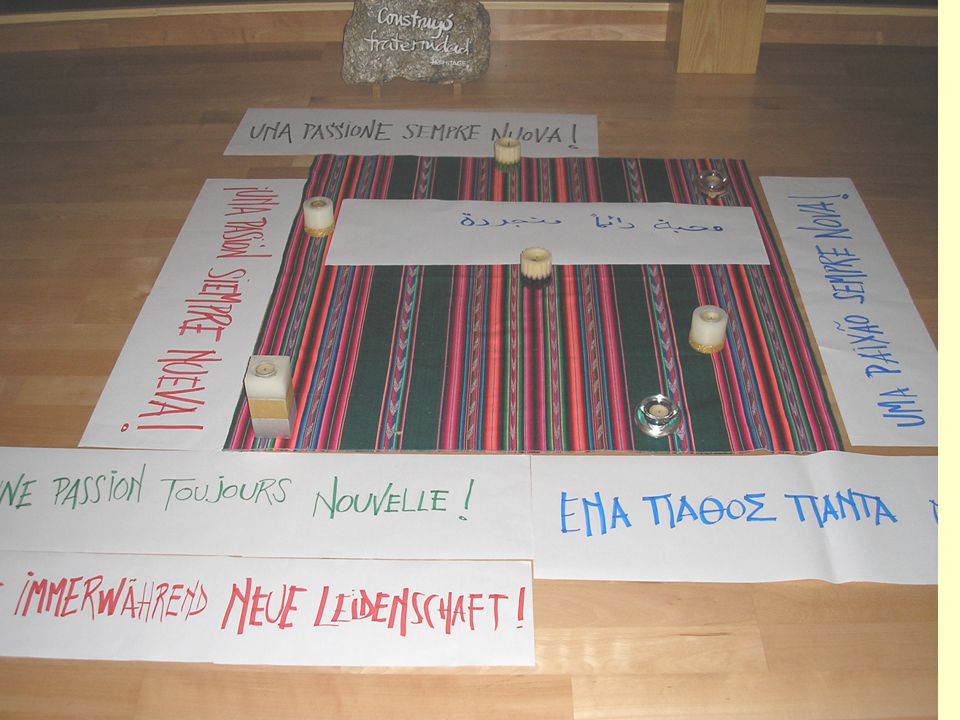 Construyó
fraternidad
UNA PASSIONE SEMPRE NUOVA!
¡UNA PASIÓN SIEMPRE NUEVA!
محبة دائماً متجددة
UMA PAIXÃO SEMPRE NOVA!
NE PASSION TOUJOURS NOUVELLE!
ΕΝΑ ΠΑΘΟΣ ΠΑΝΤΑ
IMMERWÄHREND NEUE LEIDENSCHAFT!